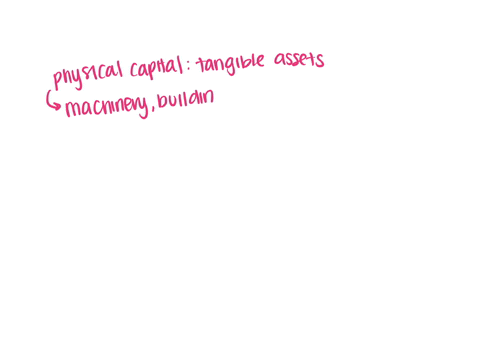 physical capital: tangible assets
↳ machinery, buildin